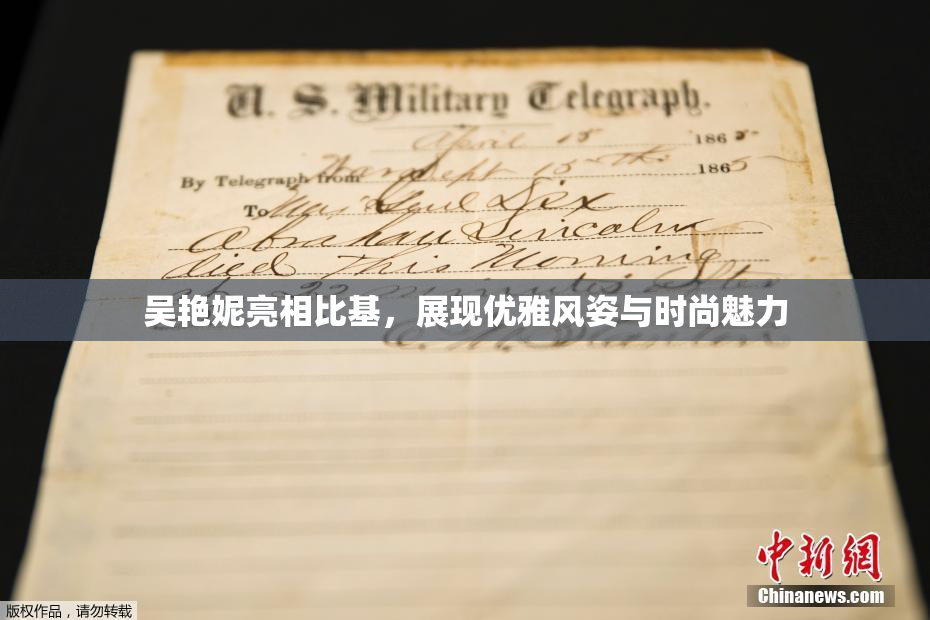 U. S. Military Telegraph.
April 15 1865
By Telegraph from War Dept 15th 1865
To Maj Genl Dix
Abraham Lincoln
died This Morning
22 minutes after
吴艳妮亮相比基，展现优雅风姿与时尚魅力
E. M. Stanton
中新网
Chinanews.com
版权作品，请勿转载